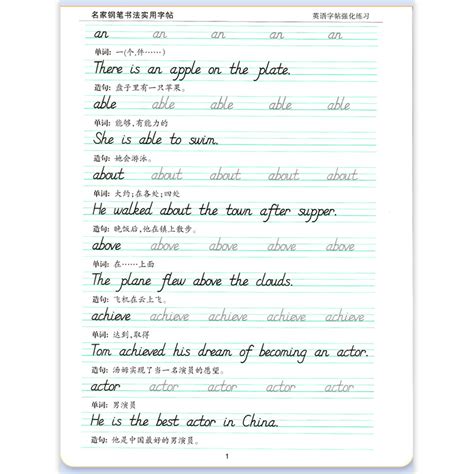 名家钢笔书法实用字帖 英语字帖强化练习
an an an an an
单词: 一(个,件……)
There is an apple on the plate.
造句: 盘子里有一只苹果。
able able able able able
单词: 能够,有能力的
She is able to swim.
造句: 她会游泳。
about about about about about
单词: 大约;在各处;四处
He walked about the town after supper.
造句: 晚饭后,他在镇上散步。
above above above above above
单词: 在……上面
The plane flew above the clouds.
造句: 飞机在云上飞。
achieve achieve achieve achieve achieve
单词: 达到,取得
Tom achieved his dream of becoming an actor.
造句: 汤姆实现了当一名演员的愿望。
actor actor actor actor actor
单词: 男演员
He is the best actor in China.
造句: 他是中国最好的男演员。
1